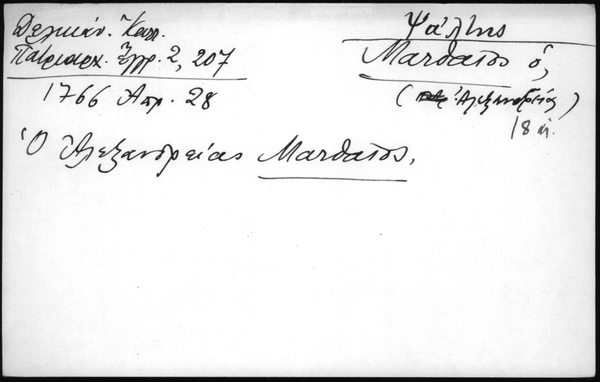 Δελικάν. Καλ.
Πατριαρχ. Ἔγγρ. 2, 207
1766 Απρ. 28
Ψάλτης
Ματθαῖος ὁ,
(Ἀλεξανδρείας)
18 αἰ.
Ὁ Ἀλεξανδρείας Ματθαῖος.